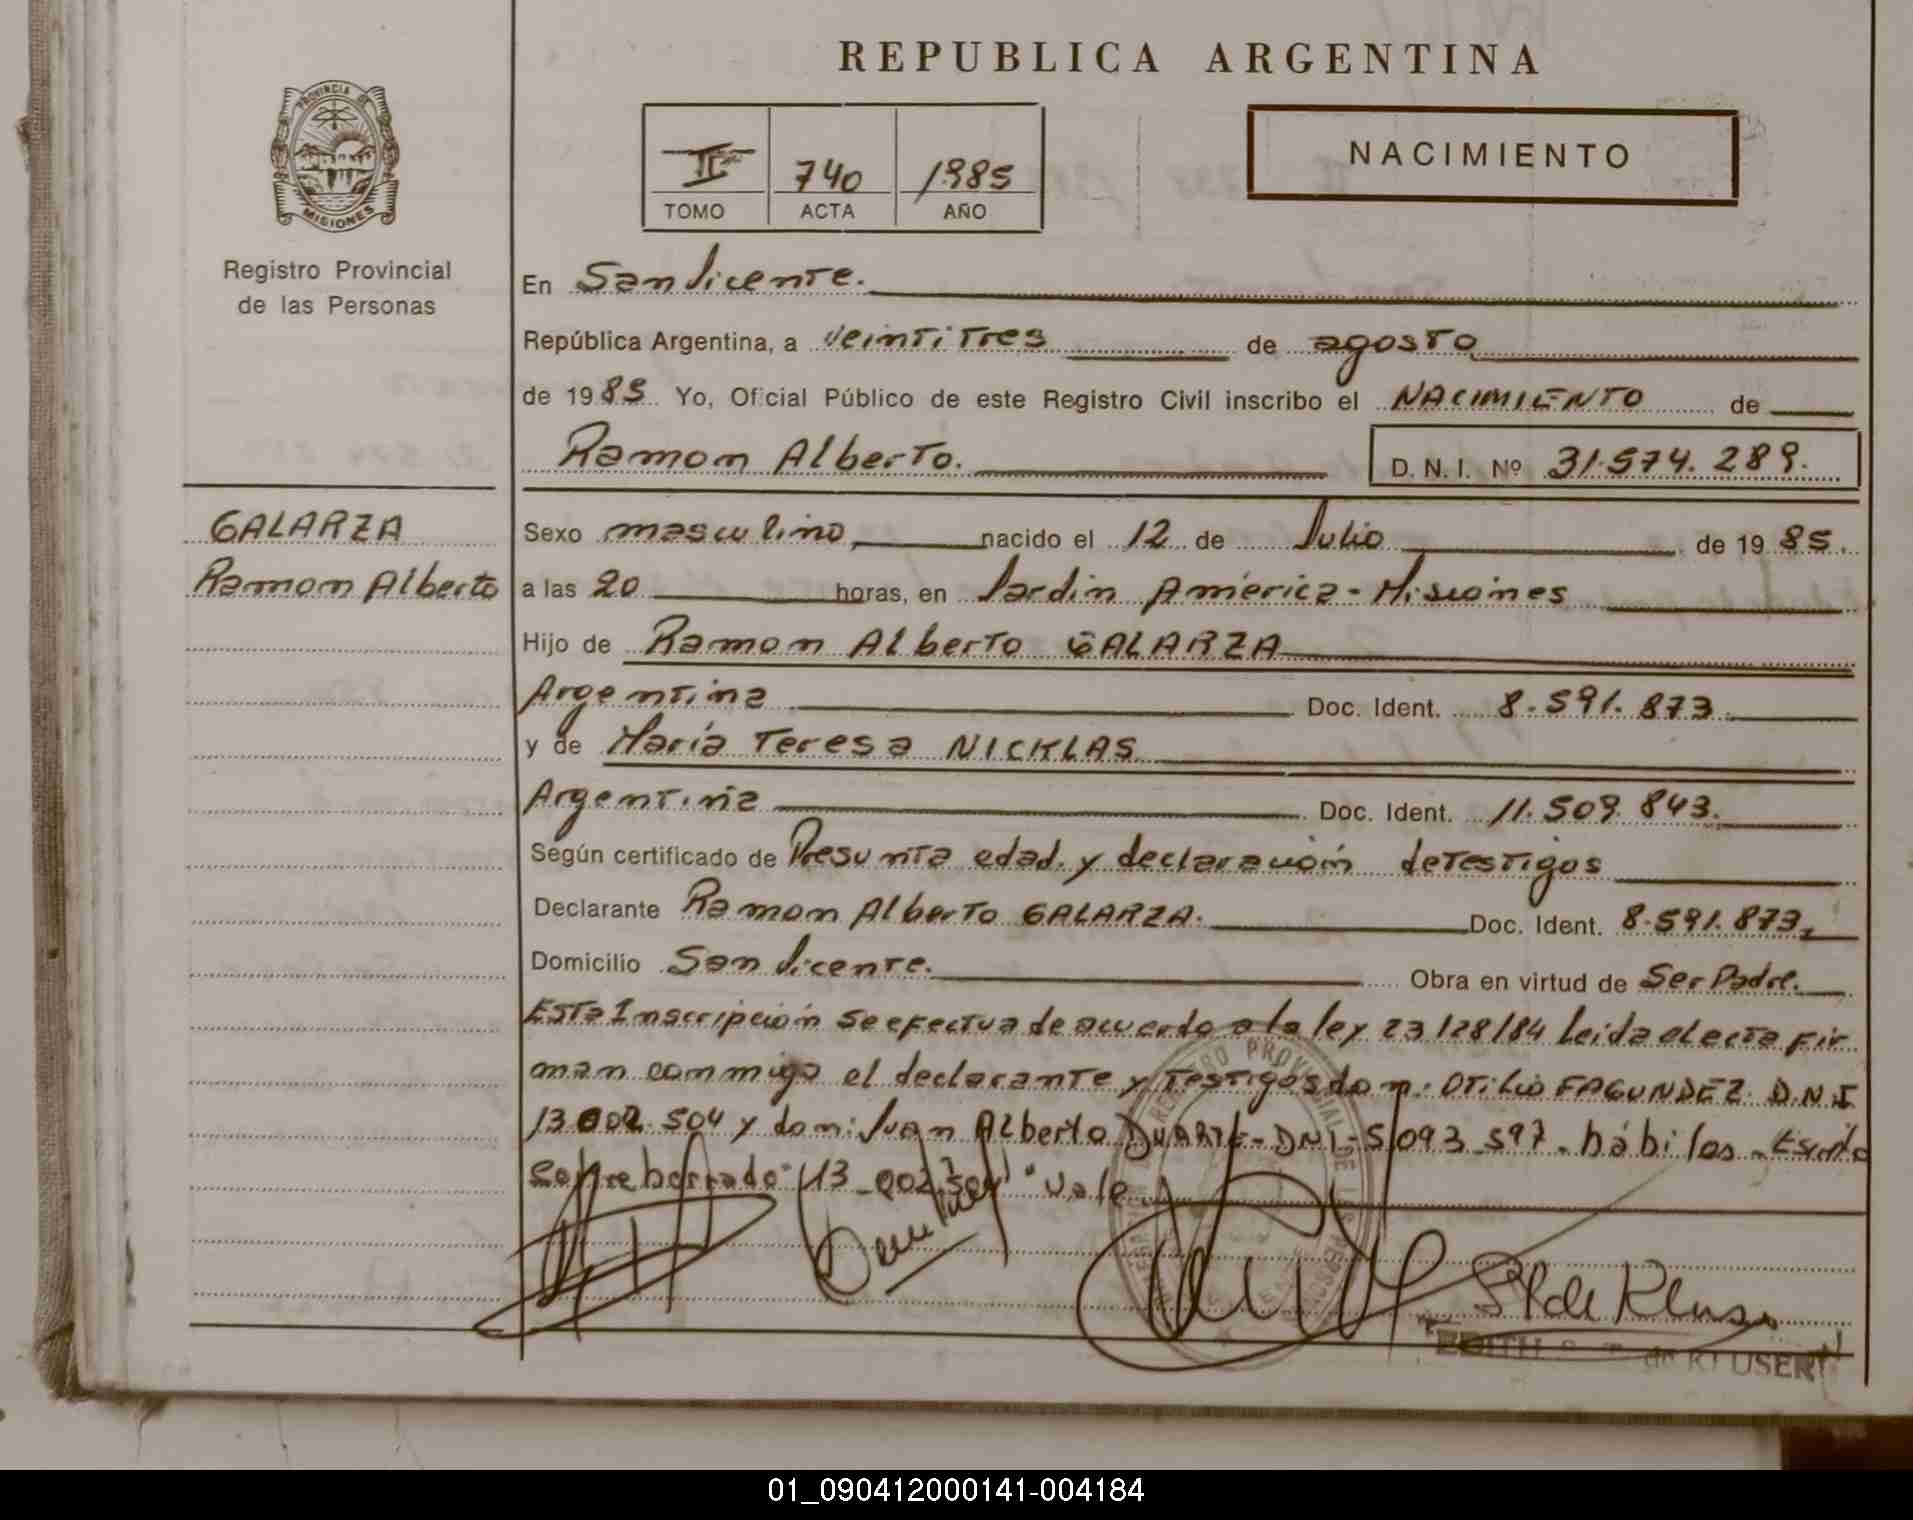 REPUBLICA ARGENTINA
PROVINCIA DE
MISIONES
Registro Provincial
de las Personas
II 740 1985
TOMO ACTA AÑO
NACIMIENTO
En San Vicente.
República Argentina, a veintitres de agosto
de 1985. Yo, Oficial Público de este Registro Civil inscribo el NACIMIENTO de
Ramon Alberto. D. N. I. Nº 31.574.289.
GALARZA
Ramon Alberto
Sexo masculino, nacido el 12 de Julio de 1985.
a las 20 horas, en Jardin América - Misiones
Hijo de Ramon Alberto GALARZA
Argentina Doc. Ident. 8.591.873.
y de María Teresa NICKLAS
Argentina Doc. Ident. 11.509.843.
Según certificado de Presunta edad. y declaración de Testigos
Declarante Ramon Alberto GALARZA. Doc. Ident. 8.591.873,
Domicilio San Vicente. Obra en virtud de Ser Padre.
Esta Inscripción se efectua de acuerdo a la ley 23128/84 Leida el acta fir
man conmigo el declarante y testigos don: Otilio FAGUNDEZ D.N.I
13.002.504 y don: Juan Alberto DUARTE - DNI - 5.093.597. hábiles - Escrito
Sobre borrado "13_002.504" Vale
S T de Kluser
EDITH S. T. de KLUSER
01_090412000141-004184